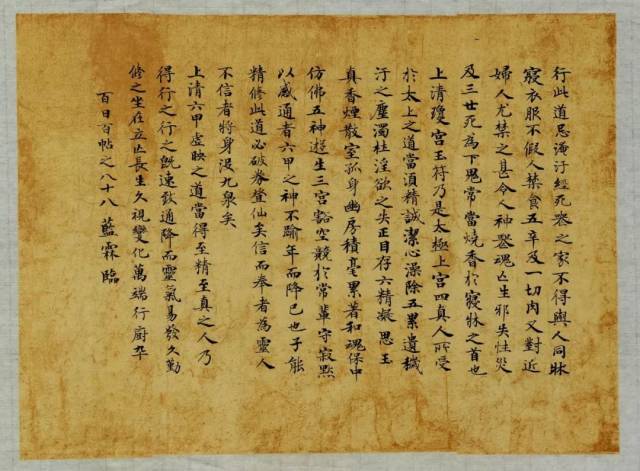 行此道忌淹汙經死喪之家不得與人同牀
寢衣服不假人禁食五辛及一切肉又對近
婦人尤禁之甚令人神喪魂亡生邪失性災
及三世死為下鬼常當燒香於寢牀之首也
上清瓊宮玉符乃是太極上宮四真人所受
於太上之道當須精誠潔心澡除五累遺穢
汙之塵濁杜淫欲之失正目存六精凝思玉
真香煙散室孤身幽房積毫累著和魂保中
仿佛五神遊生三宮豁空競於常輩守寂默
以感通者六甲之神不踰年而降已也子能
精修此道必破券登仙矣信而奉者為靈人
不信者將身沒九泉矣
上清六甲虛映之道當得至精至真之人乃
得行之行之既速致通降而靈氣易發久勤
修之坐在立亡長生久視變化萬端行廚卒
百日百帖之八十八 藍霖臨